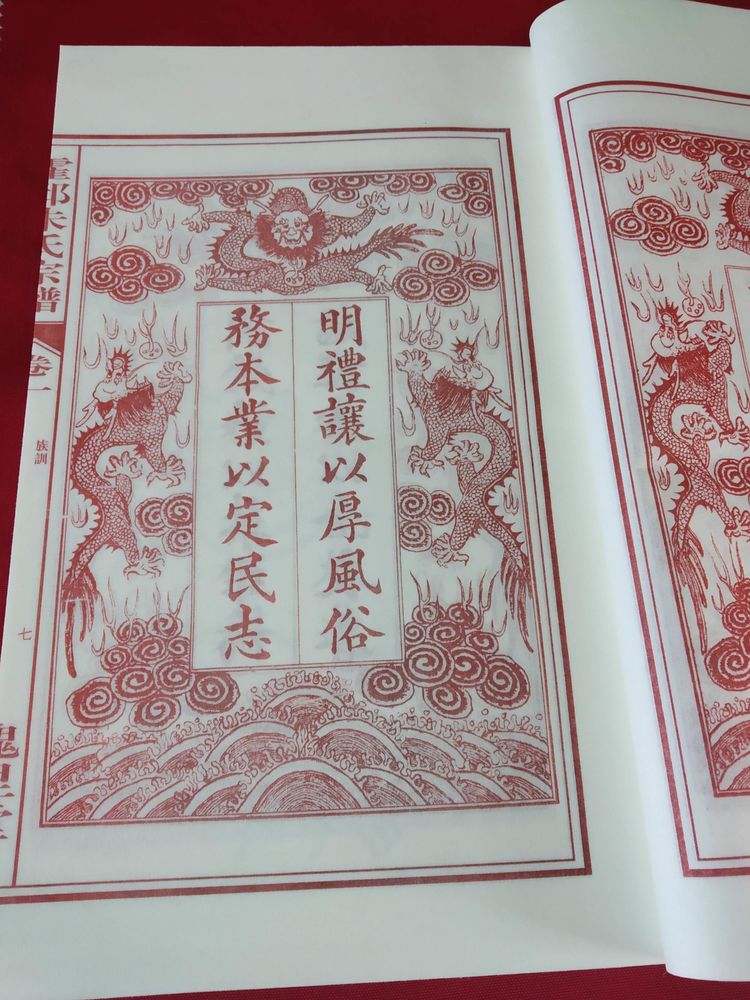 明禮讓以厚風俗
務本業以定民志
朱氏宗譜
卷一
族訓
七